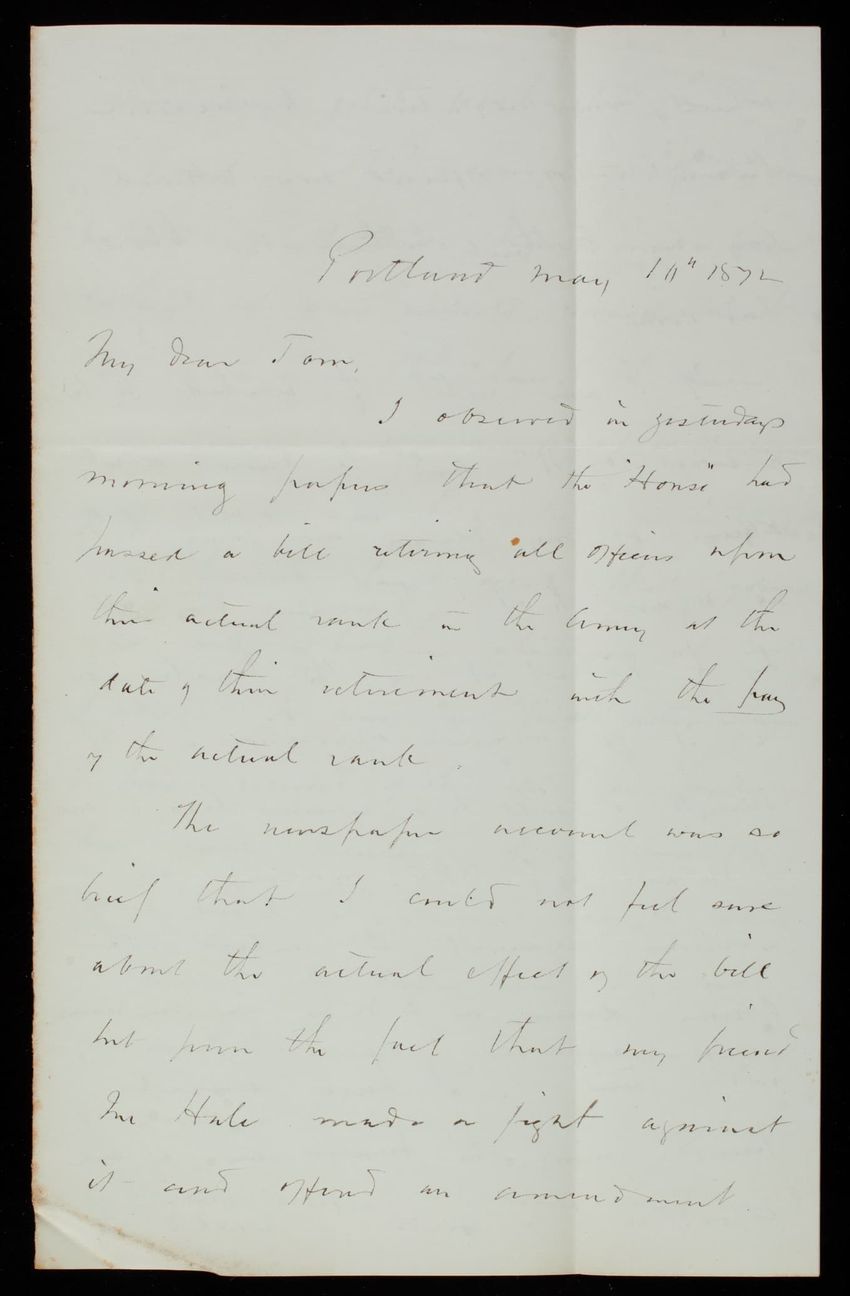 Portland May 10" 1872
My dear Tom,
I observed in yesterdays
morning papers that the "House" had
passed a bill retiring all officers upon
their actual rank in the Army at the
date of their retirement with the pay
of the actual rank.
The newspaper account was so
brief that I could not feel sure
about the actual effect of the bill
but from the fact that my friend
Mr Hale made a fight against
it and offered an amendment